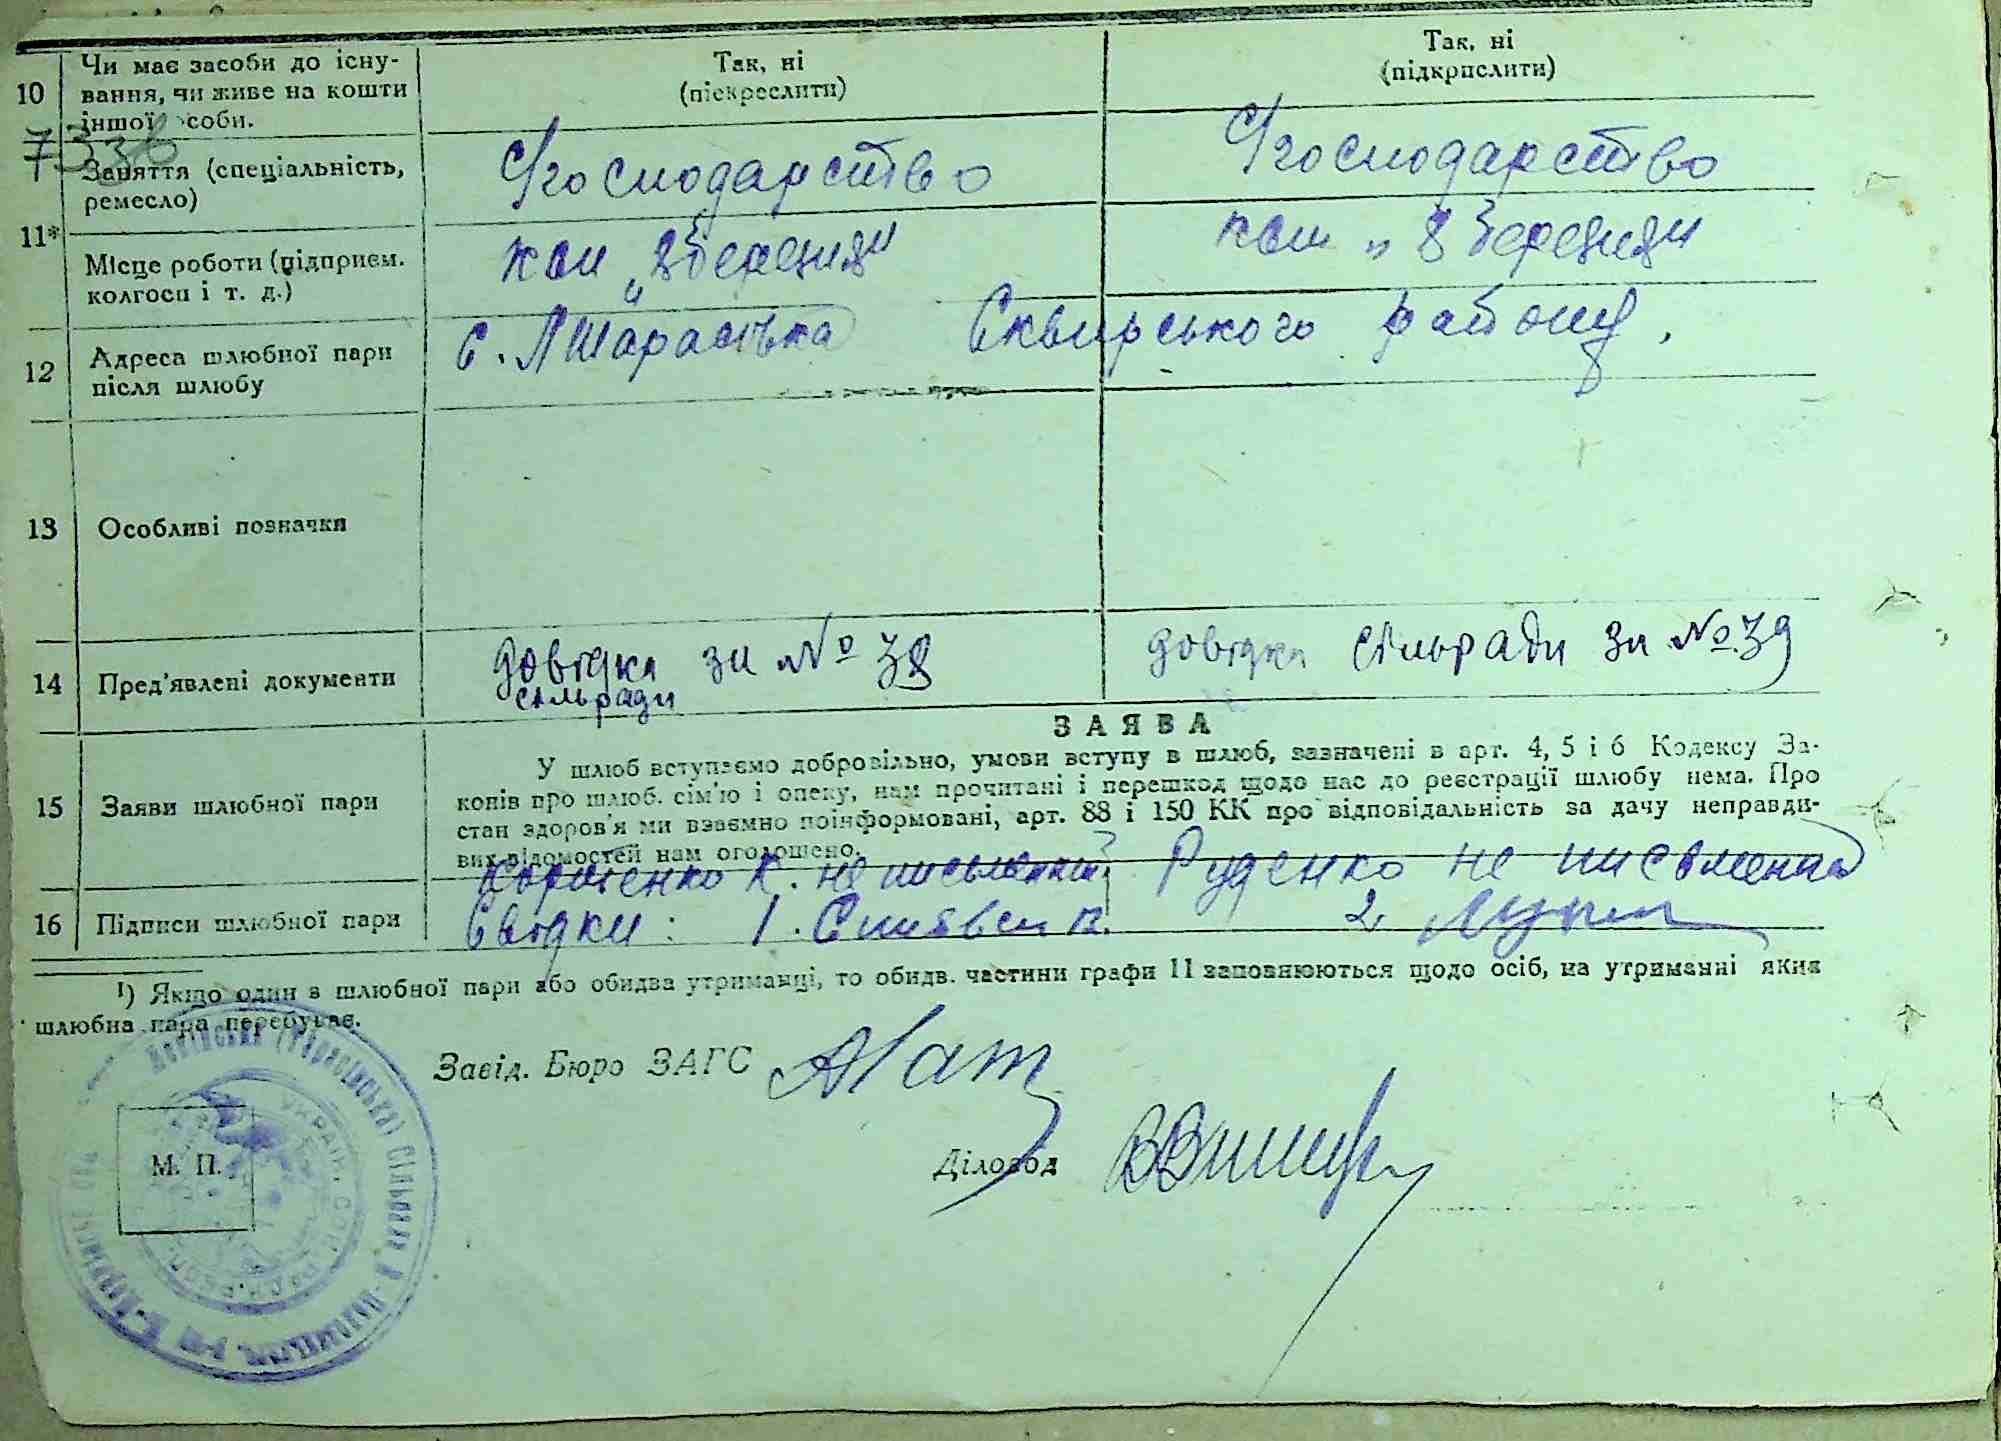 10 Чи має засоби до існу-
вання, чи живе на кошти
іншої особи.
Так, ні
(підкреслити)
Так, ні
(підкрпслити)
733
Заняття (спеціальність,
ремесло)
С/господарство
С/господарство
11*
Місце роботи (підприєм.
колгосп і т. д.)
ксм „8 березня"
ксм „8 березня"
12 Адреса шлюбної пари
після шлюбу
с. Тарасівка Сквирського району.
13 Особливі позначки
14 Пред'явлені документи
довідка за № 38
сільради
довідка сільради за № 39
ЗАЯВА
15 Заяви шлюбної пари
У шлюб вступаємо добровільно, умови вступу в шлюб, зазначені в арт. 4, 5 і 6 Кодексу За-
конів про шлюб. сім'ю і опеку, нам прочитані і перешкод щодо нас до реєстрації шлюбу нема. Про
стан здоров'я ми взаємно поінформовані, арт. 88 і 150 КК про відповідальність за дачу неправди-
вих відомостей нам оголошено.
16 Підписи шлюбної пари
К. не письменний Руденко не письменна
Свідки: 1. 2.
¹) Якщо один з шлюбної пари або обидва утриманці, то обидв. частини графи 11 заповнюються щодо осіб, на утриманні яких
шлюбна пара перебуває.
Завід. Бюро ЗАГС
М. П.
Діловод
(Тарасівська) Сільрада
УКРАЇН. СОЦ. РАД. РЕСП.